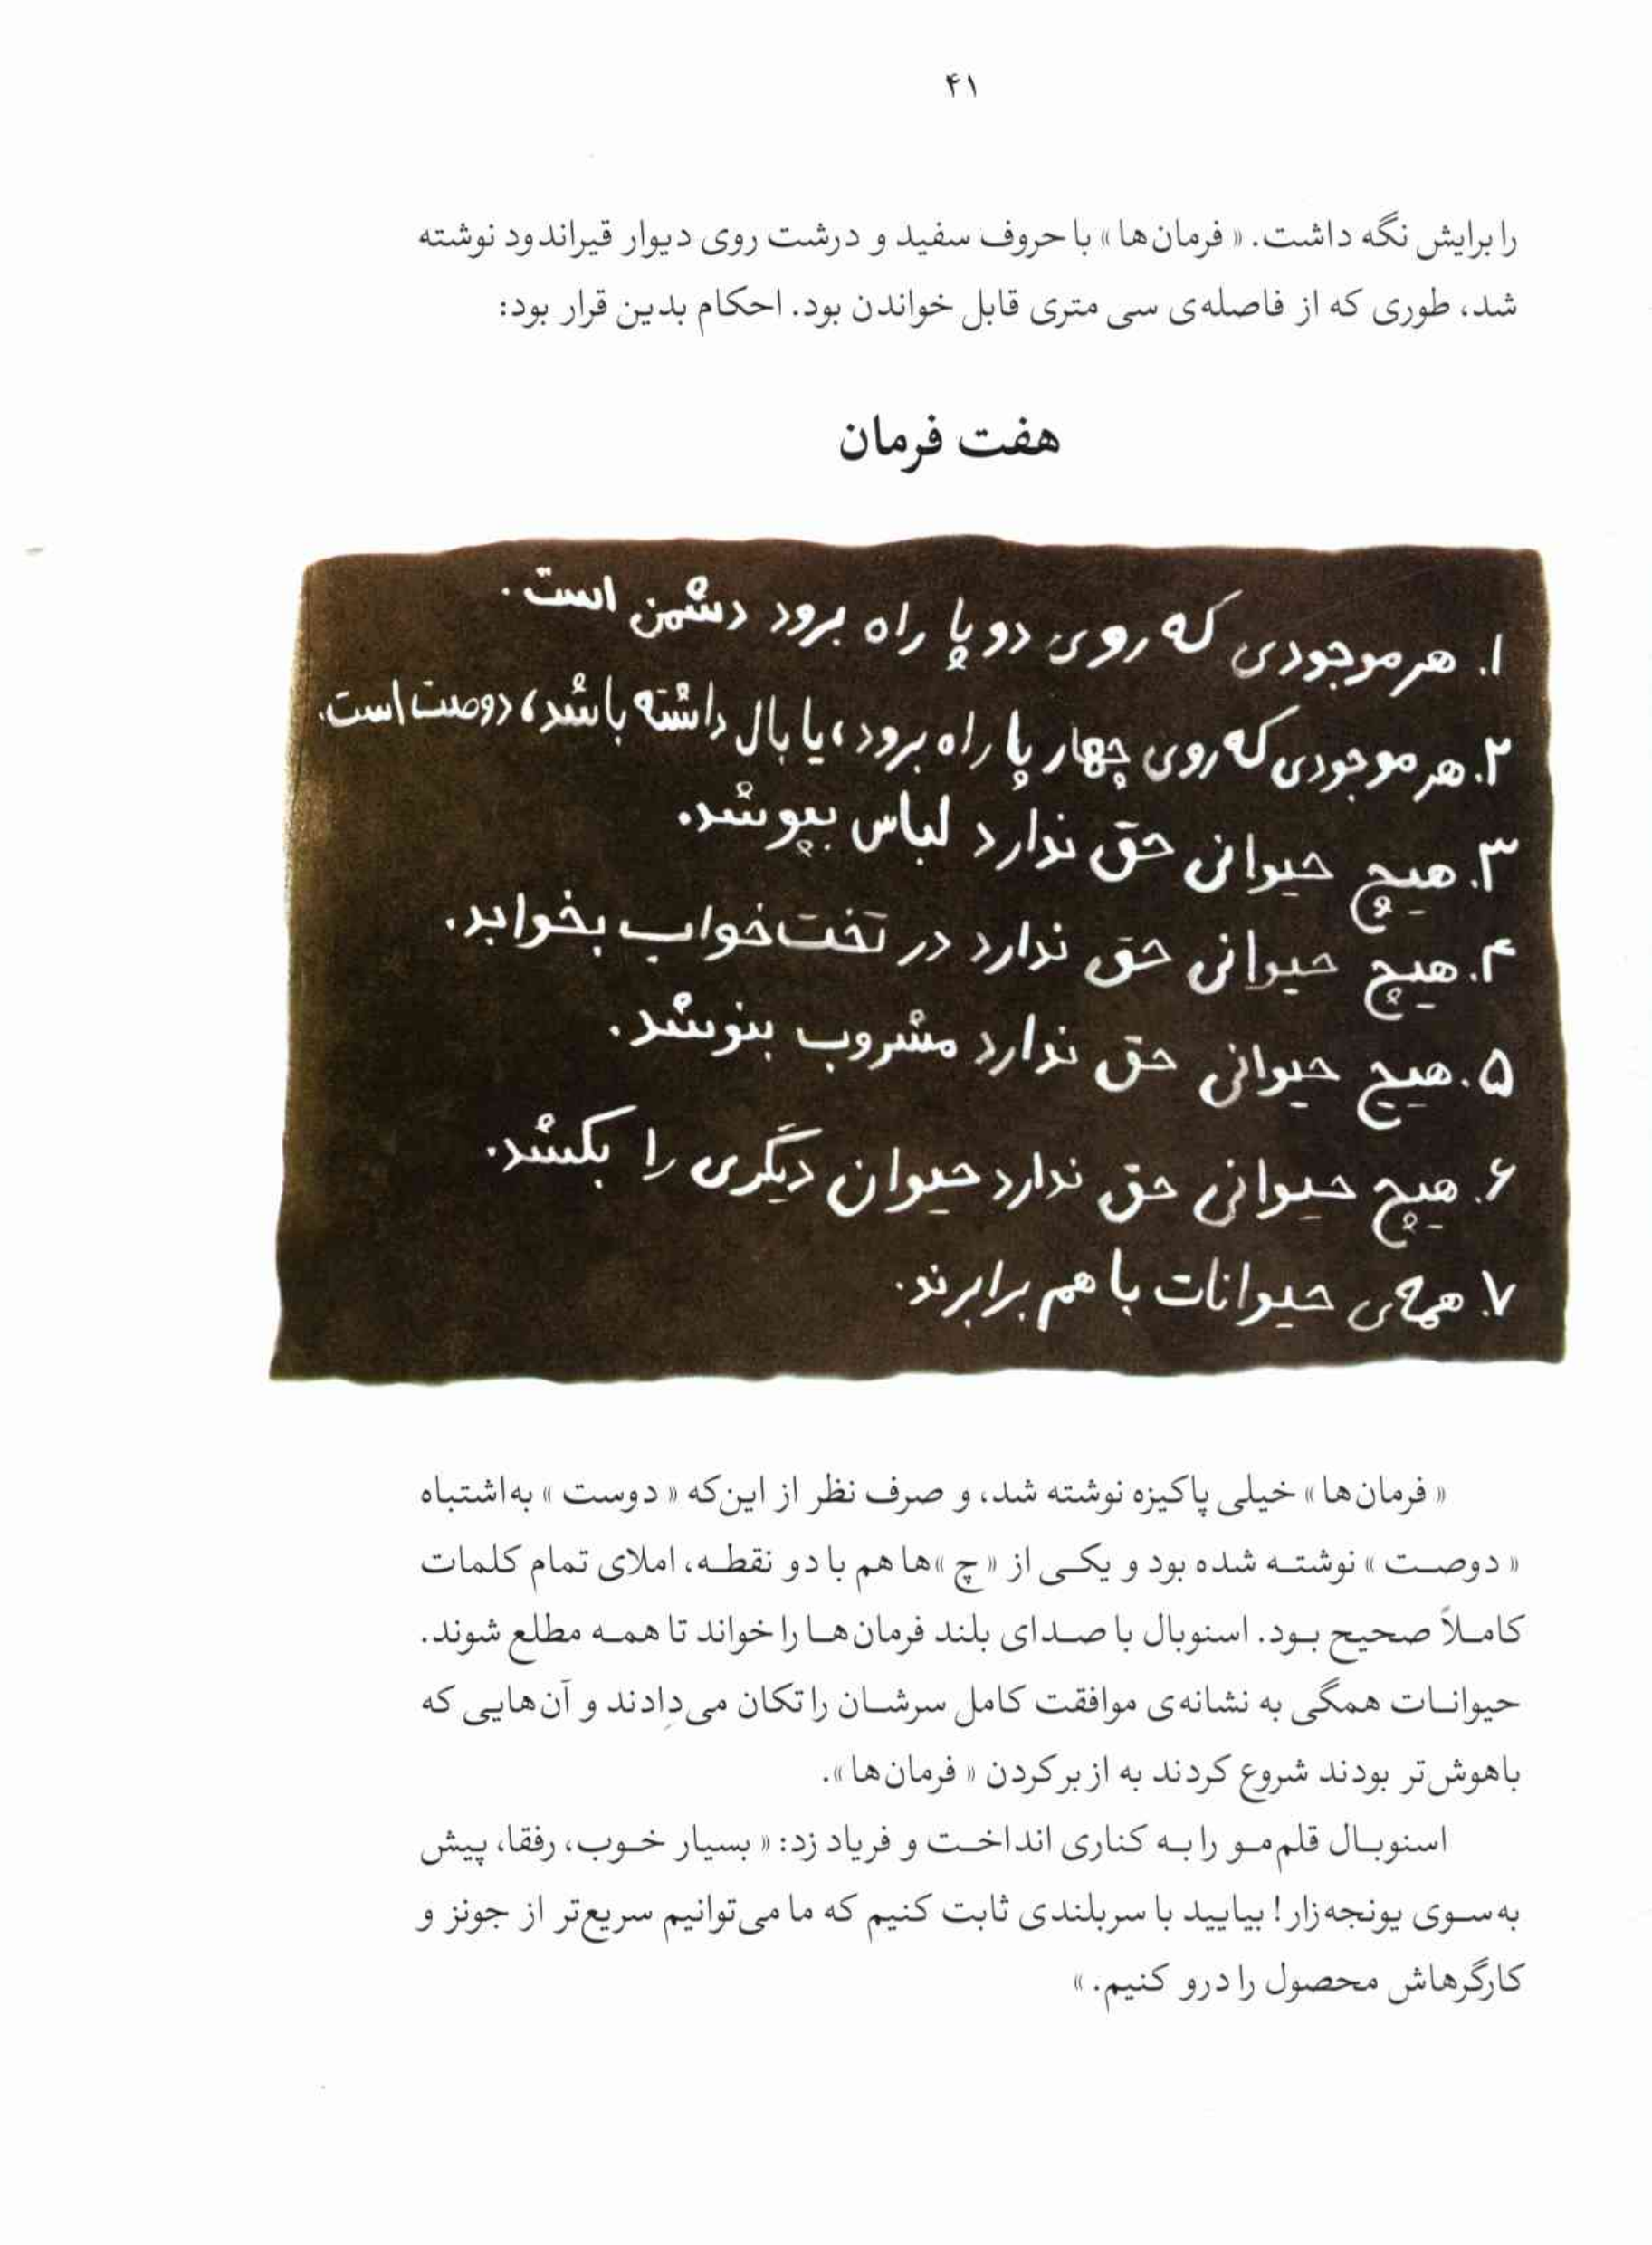 ۴۱
را برایش نگه داشت. « فرمان‌ها » با حروف سفید و درشت روی دیوار قیراندود نوشته
شد، طوری که از فاصله‌ی سی متری قابل خواندن بود. احکام بدین قرار بود:
هفت فرمان
۱. هر موجودی که روی دو پا راه برود دشمن است.
۲. هر موجودی که روی چهار پا راه برود، یا بال داشته باشد، دوصت است.
۳. هیچ حیوانی حق ندارد لباس بپوشد.
۴. هیچ حیوانی حق ندارد در تخت‌خواب بخوابد.
۵. هیچ حیوانی حق ندارد مشروب بنوشد.
۶. هیچ حیوانی حق ندارد حیوان دیگری را بکشد.
۷. همه‌ی حیوانات با هم برابرند.
« فرمان‌ها » خیلی پاکیزه نوشته شد، و صرف نظر از این‌که « دوست » به‌اشتباه
« دوصت » نوشته شده بود و یکی از « چ »ها هم با دو نقطه، املای تمام کلمات
کاملاً صحیح بود. اسنوبال با صدای بلند فرمان‌ها را خواند تا همه مطلع شوند.
حیوانات همگی به نشانه‌ی موافقت کامل سرشان را تکان می‌دادند و آن‌هایی که
باهوش‌تر بودند شروع کردند به از بر کردن « فرمان‌ها ».
اسنوبال قلم‌مو را به کناری انداخت و فریاد زد: « بسیار خوب، رفقا، پیش
به‌سوی یونجه‌زار! بیایید با سربلندی ثابت کنیم که ما می‌توانیم سریع‌تر از جونز و
کارگرهاش محصول را درو کنیم. »